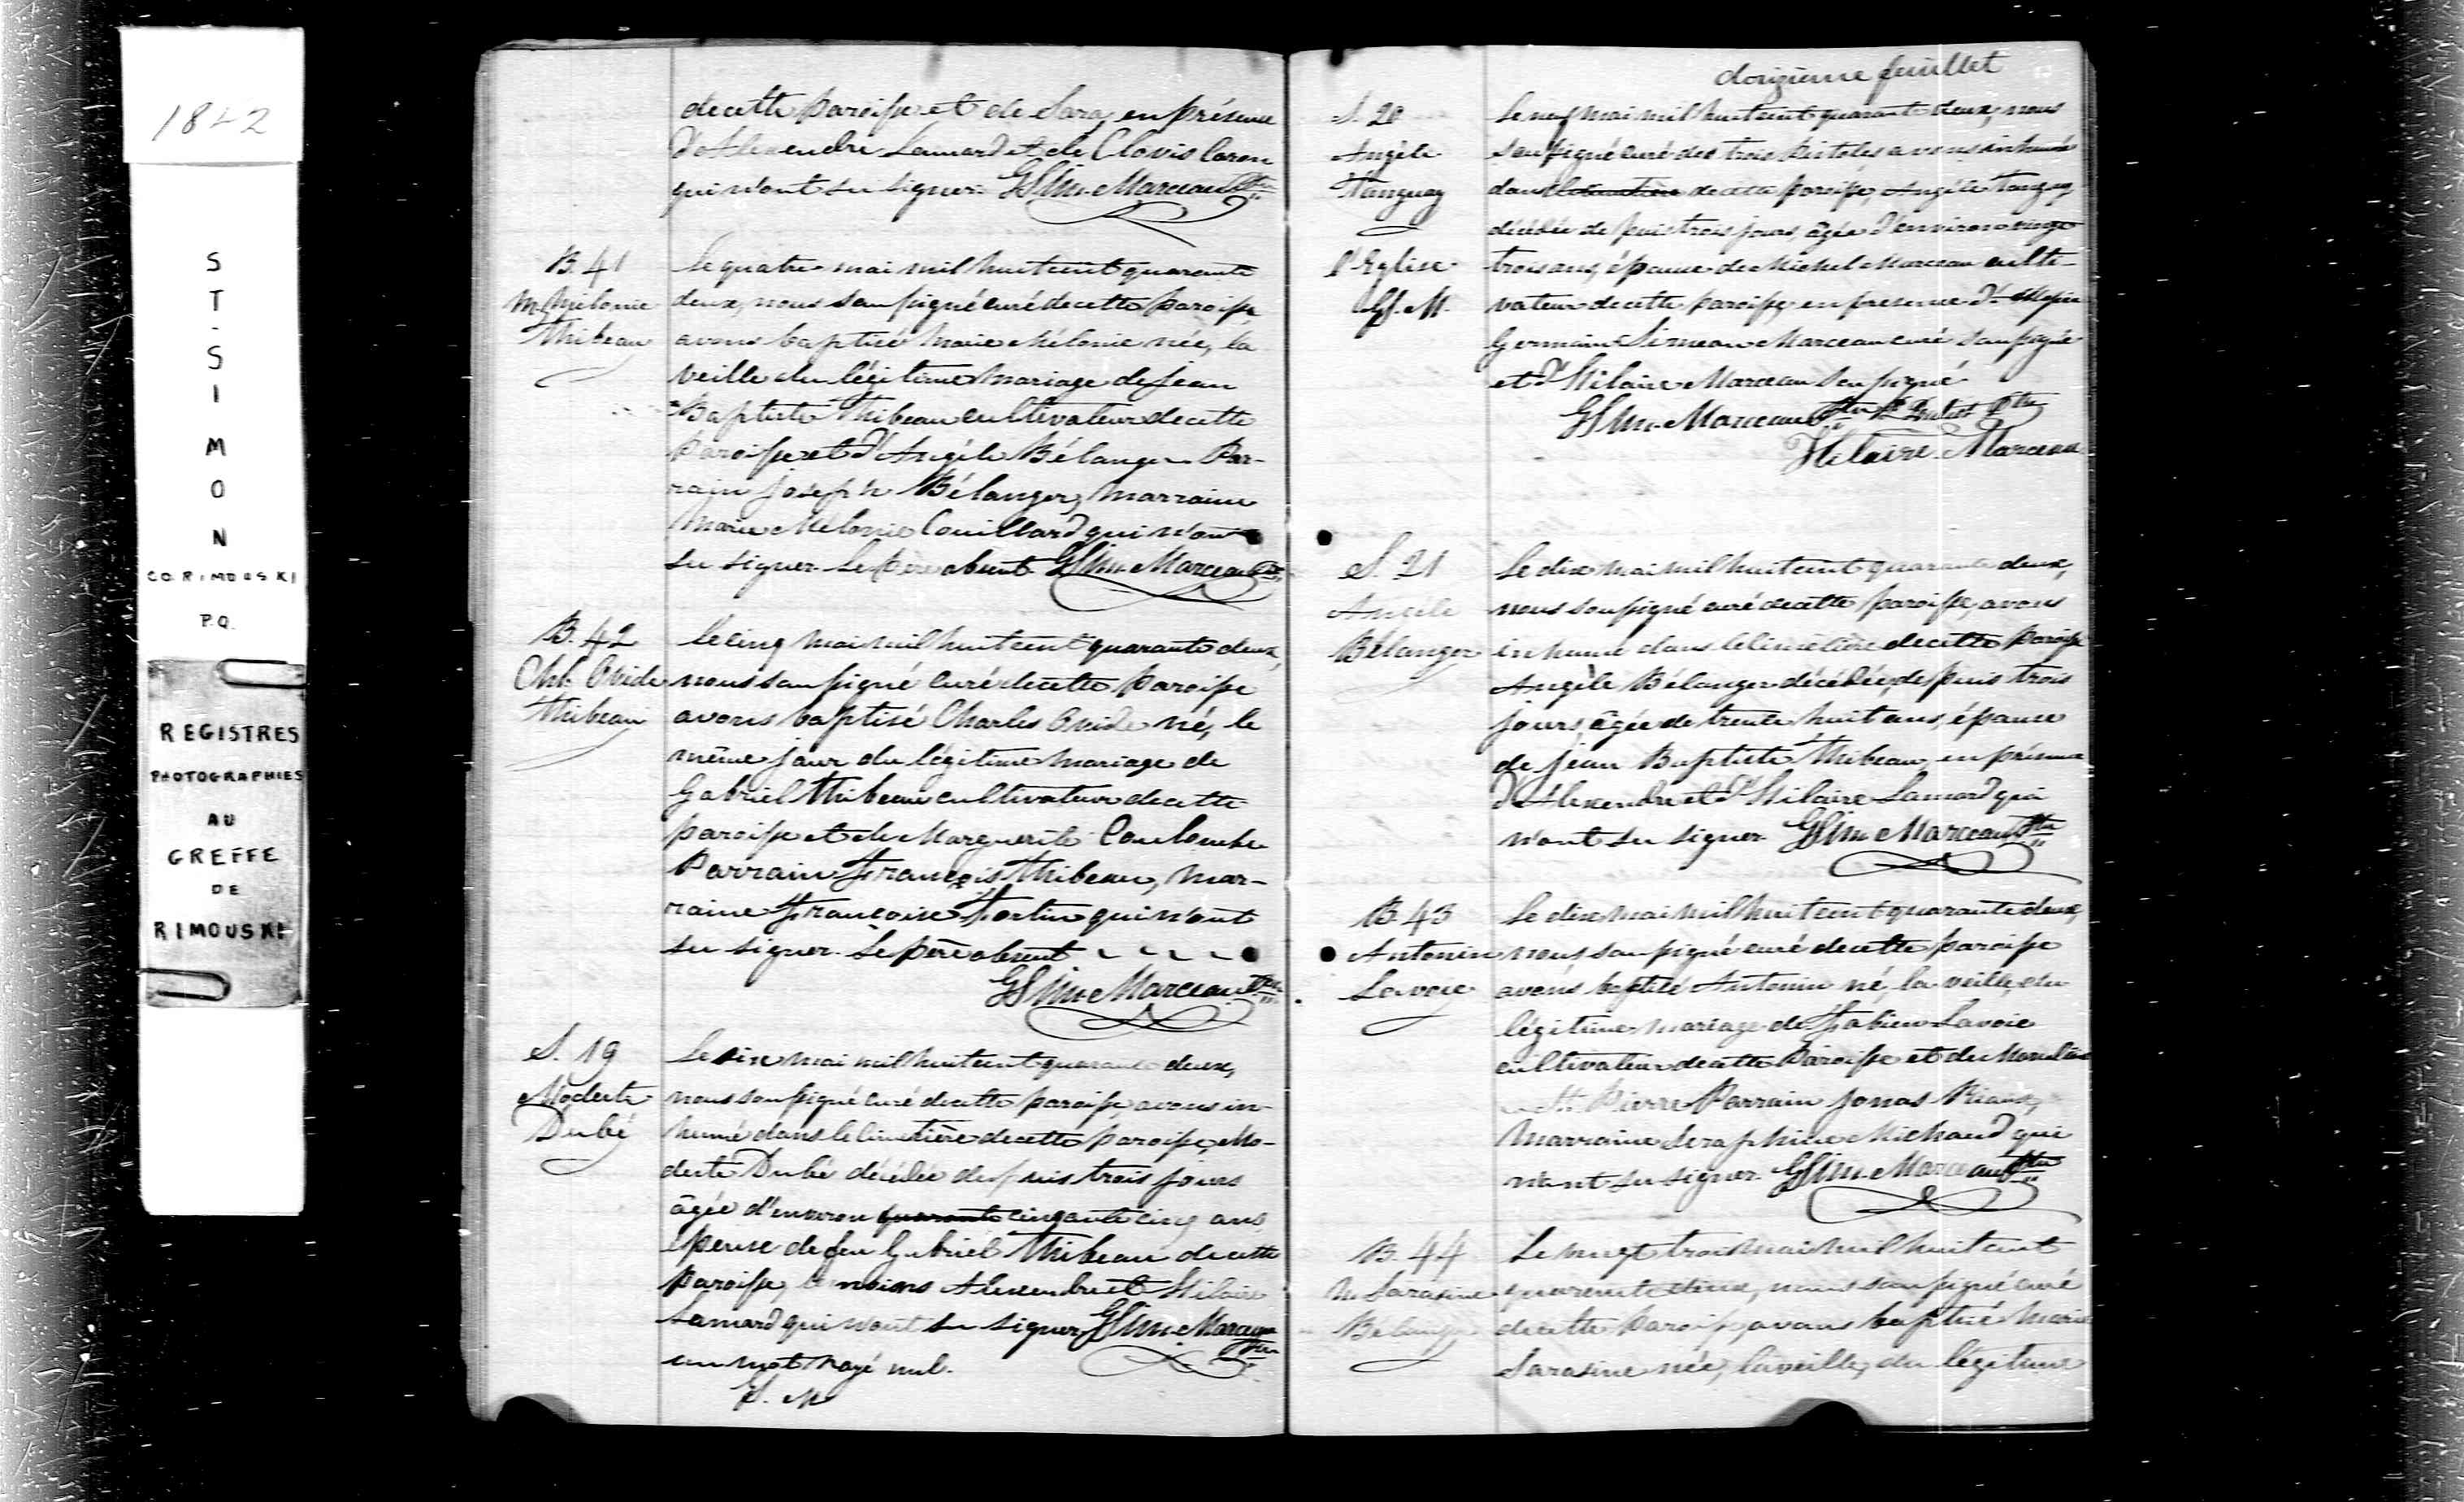 1842
ST-SIMON
CO. RIMOUSKI
P.Q.
REGISTRES
PHOTOGRAPHIES
AU
GREFFE
DE
RIMOUSKI
decette paroisse et de Sara, en présence
d'Alexendre Lamard et de Clovis Caron
qui n'ont su signer. GSim. Marceau Ptre
B. 41
M. Mélonie
Thibeau
Le quatre mai mil huit cent quarante
deux, nous soussigné curé decette paroisse
avons baptisé Marie Mélonie née, la
veille du légitime mariage de Jean
Baptiste Thibeau cultivateur decette
paroisse et d'Angèle Bélanger. Par-
rain Joseph Bélanger, marraine
Marie Mélonie Couillard qui n'ont
su signer. Le père absent. GSim. Marceau Ptre
B. 42
Chs. Ovide
Thibeau
Le cinq mai mil huit cent quarante deux,
nous soussigné curé decette paroisse
avons baptisé Charles Ovide né, le
même jour du légitime mariage de
Gabriel Thibeau cultivateur decette
paroisse et de Marguerite Coulombe
Parrain François Thibeau, mar-
raine Françoise Fortin qui n'ont
su signer. Le père absent
GSim. Marceau Ptre
S. 19
Modeste
Dubé
Le six mai mil huit cent quarante deux,
nous soussigné curé decette paroisse avons in-
humé dans le cimetière decette paroisse, Mo-
deste Dubé décédée depuis trois jours
âgée d'environ quarante cinquante cinq ans,
épouse de feu Gabriel Thibeau decette
paroisse, témoins Alexendre et Hilaire
Lamard qui n'ont su signer GSim. Marceau
Ptre
un mot rayé nul.
G.S. M
douzième feuillet
S. 20
Angèle
Tanguay
l'Eglise
GS. M.
Le neuf mai mil huit cent quarante deux, nous
soussigné curé des trois Pistoles avons inhumé
dans le cimetière decette paroisse, Angèle Tanguay
décédée depuis trois jours, âgée d'environ vingt
trois ans, épouse de Michel Marceau culti-
vateur decette paroisse, en présence de Messire
Germain Simeon Marceau curé soussigné
et d'Hilaire Marceau soussigné
GSim. Marceau Ptre Ptre
Hilaire Marceau
S. 21
Angèle
Bélanger
Le dix mai mil huit cent quarante deux,
nous soussigné curé decette paroisse, avons
inhumé dans le cimetière decette paroisse
Angèle Bélanger décédée, depuis trois
jours, âgée de trente huit ans, épouse
de Jean Baptiste Thibeau, en présence
d'Alexendre et d'Hilaire Lamard qui
n'ont su signer. GSim. Marceau Ptre
B. 43
Antonin
Lavoie
Le dix mai mil huit cent quarante deux,
nous soussigné curé decette paroisse
avons baptisé Antonin né, la veille, du
légitime mariage de Fabien Lavoie
cultivateur decette Paroisse et de
St. Pierre Parrain Jonas Rioux,
Marraine Seraphine Michaud qui
n'ont su signer. GSim. Marceau Ptre
B. 44
M. Sarasine
Belanger
Le vingt trois mai mil huit cent
quarante deux, nous soussigné curé
decette Paroisse, avons baptisé Marie
Sarasine née, la veille, du légitime